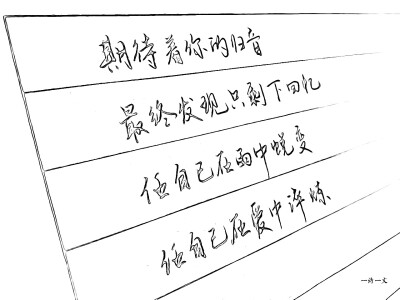 期待着你的归音
最终发现只剩下回忆
任自己在雨中蜕变
任自己在爱中淬炼
一诗一文